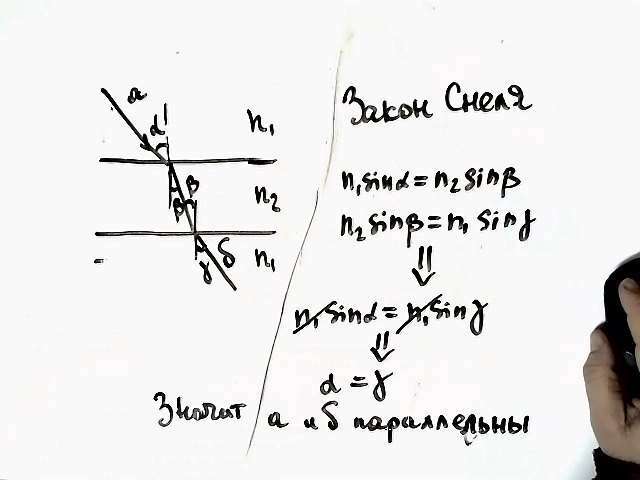 a
α
n₁
β
β
n₂
γ
б
n₁
Закон Снеля
n₁sinα=n₂sinβ
n₂sinβ=n₁sinγ
⇓
n₁sinα=n₁sinγ
⇓
α=γ
Значит а и б параллельны